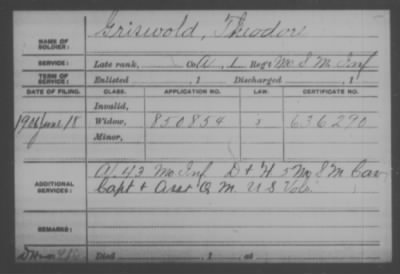 NAME OF SOLDIER: Griswold, Theodore
SERVICE: Late rank, Co. A, 1 Reg't Mo S M Inf
TERM OF SERVICE: Enlisted , 1 Discharged , 1
DATE OF FILING. CLASS. APPLICATION NO. LAW. CERTIFICATE NO.
Invalid,
1906 June 18 Widow, 850854 636290
Minor,
ADDITIONAL SERVICES: A. 43 Mo Inf D + H 5 Mo S M Cav
Capt + Asst Q M. U S Vols.
REMARKS:
Died , 1 , at